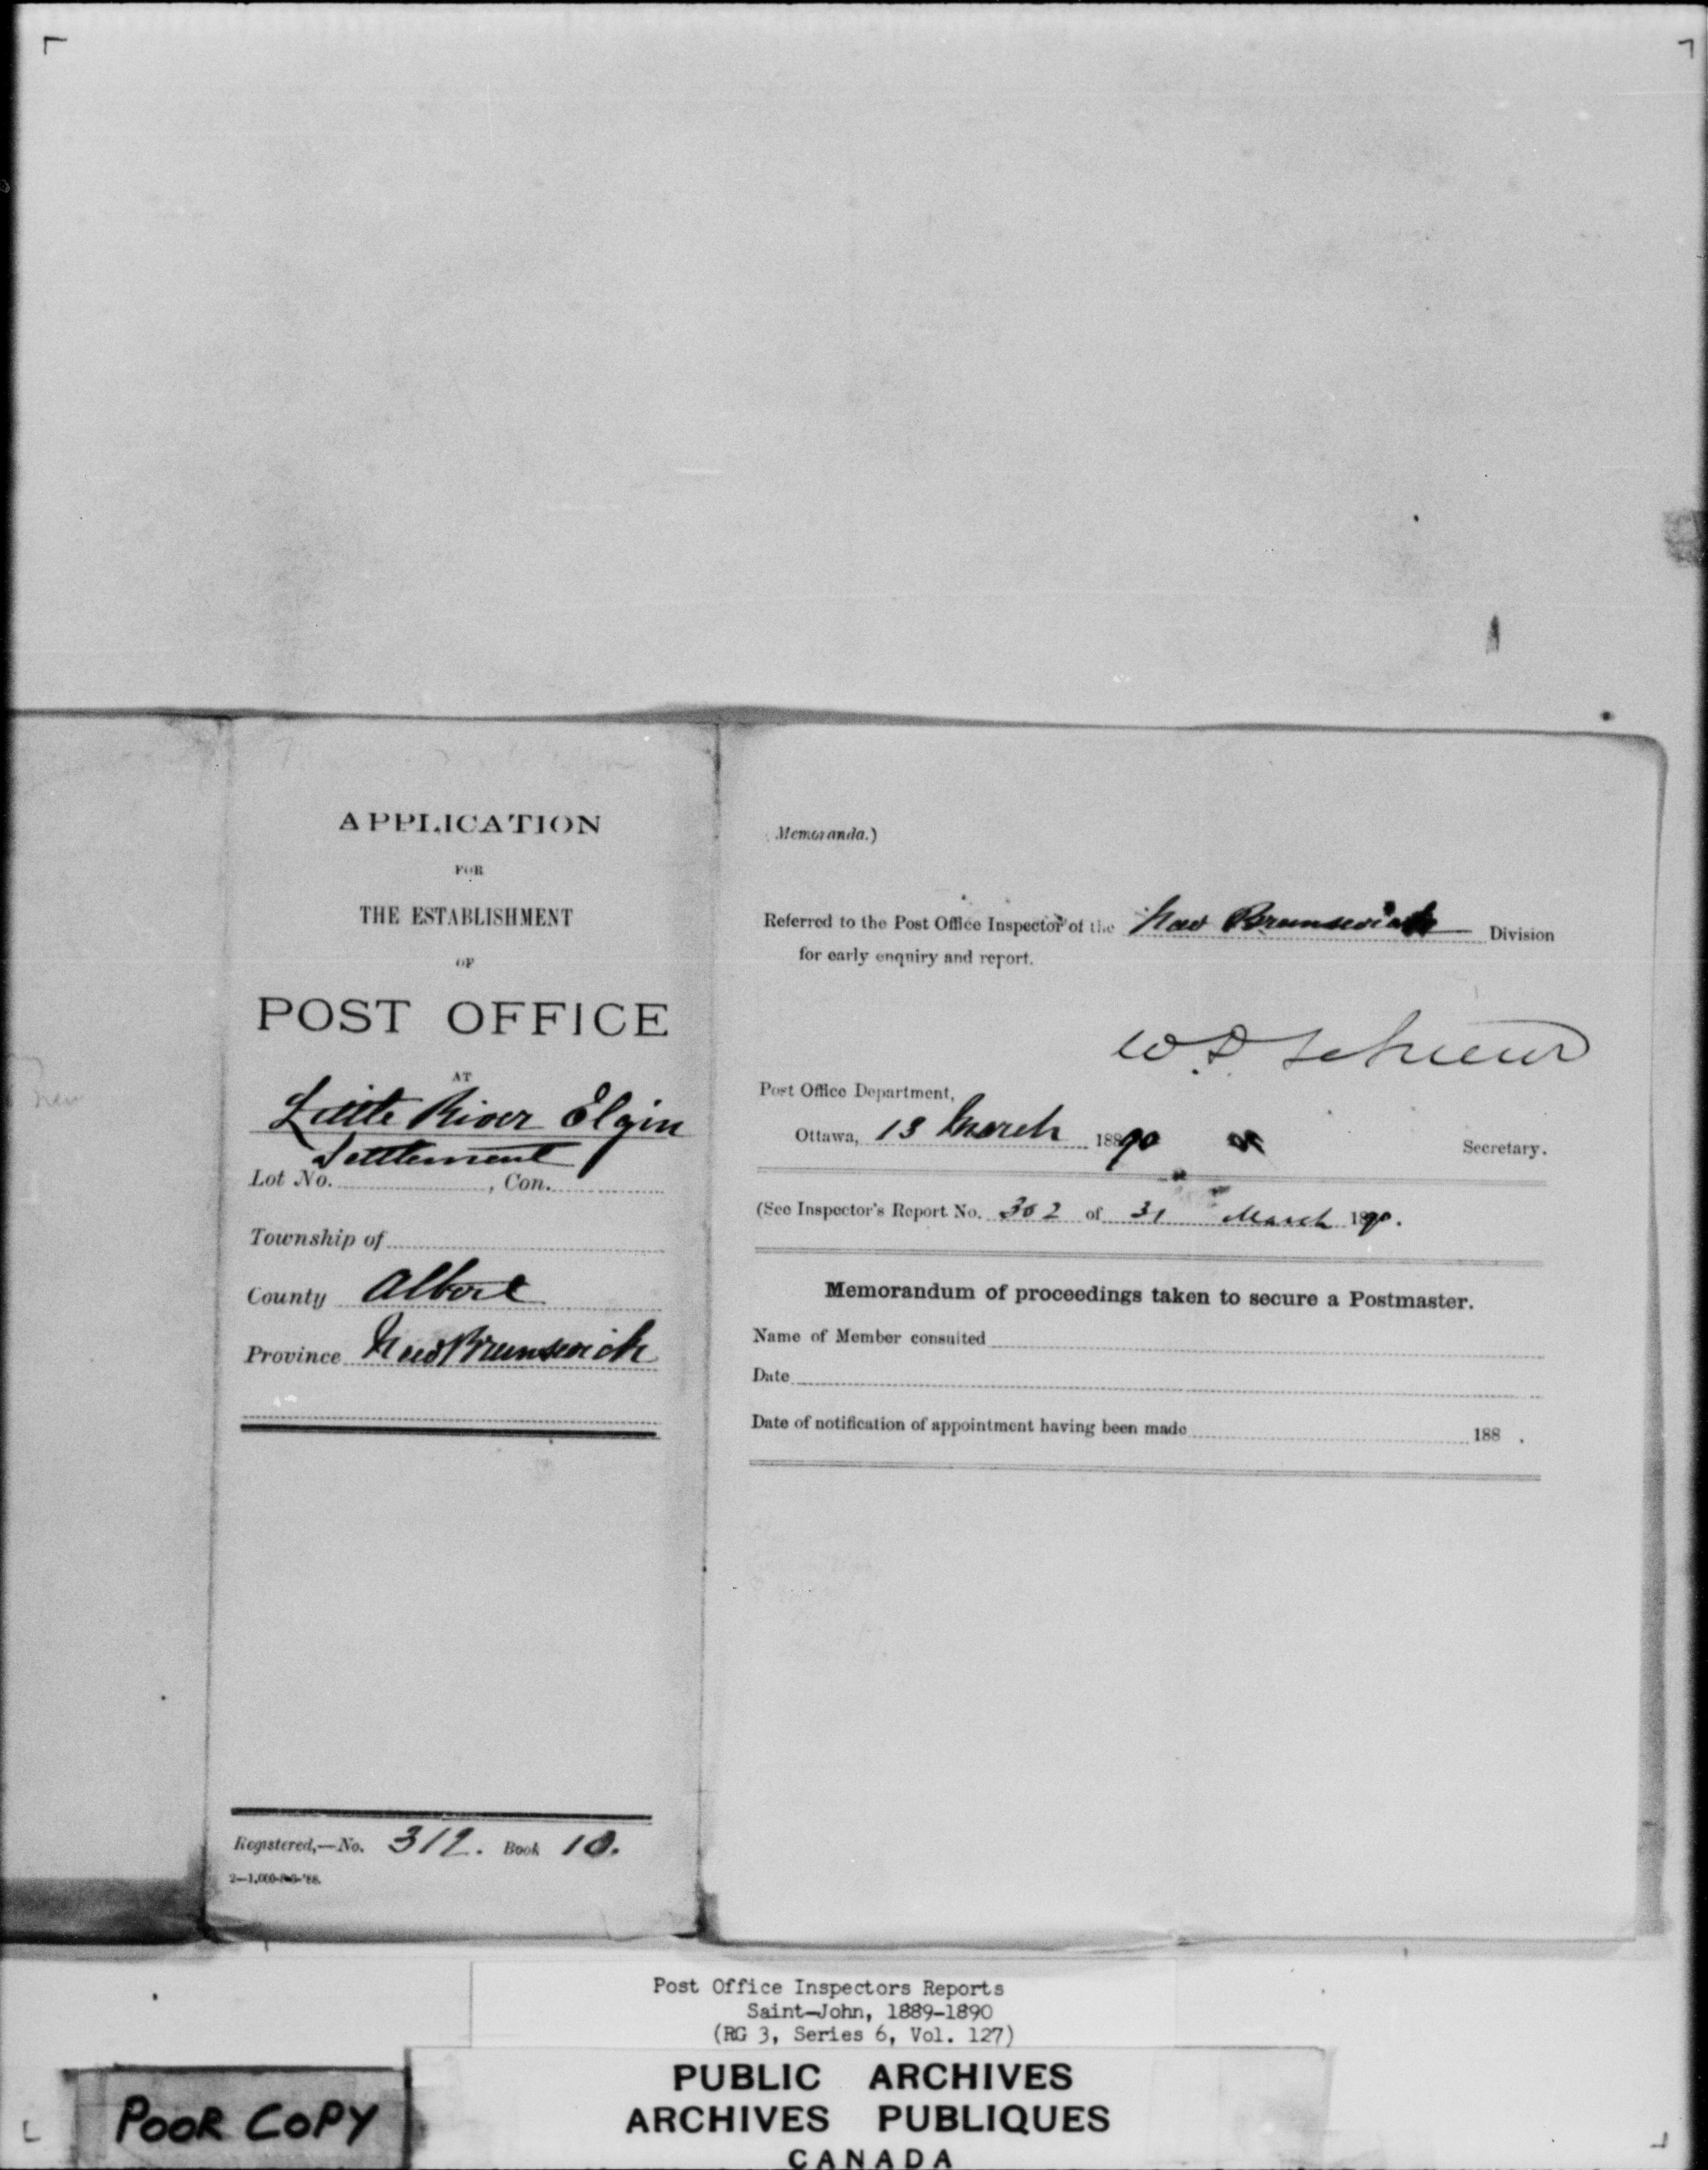 APPLICATION
FOR
THE ESTABLISHMENT
OF
POST OFFICE
AT
Little River Elgin
Settlement
Lot No. , Con.
Township of
County Albert
Province New Brunswick
Registered,—No. 312. Book 10.
Memoranda.)
Referred to the Post Office Inspector of the New Brunswick Division
for early enquiry and report.
Post Office Department,
Ottawa, 13 March 1890
Secretary.
(See Inspector's Report No. 302 of 31 March 1890.
Memorandum of proceedings taken to secure a Postmaster.
Name of Member consulted
Date
Date of notification of appointment having been made 188 .
Post Office Inspectors Reports
Saint-John, 1889-1890
(RG 3, Series 6, Vol. 127)
PUBLIC ARCHIVES
ARCHIVES PUBLIQUES
CANADA
POOR COPY